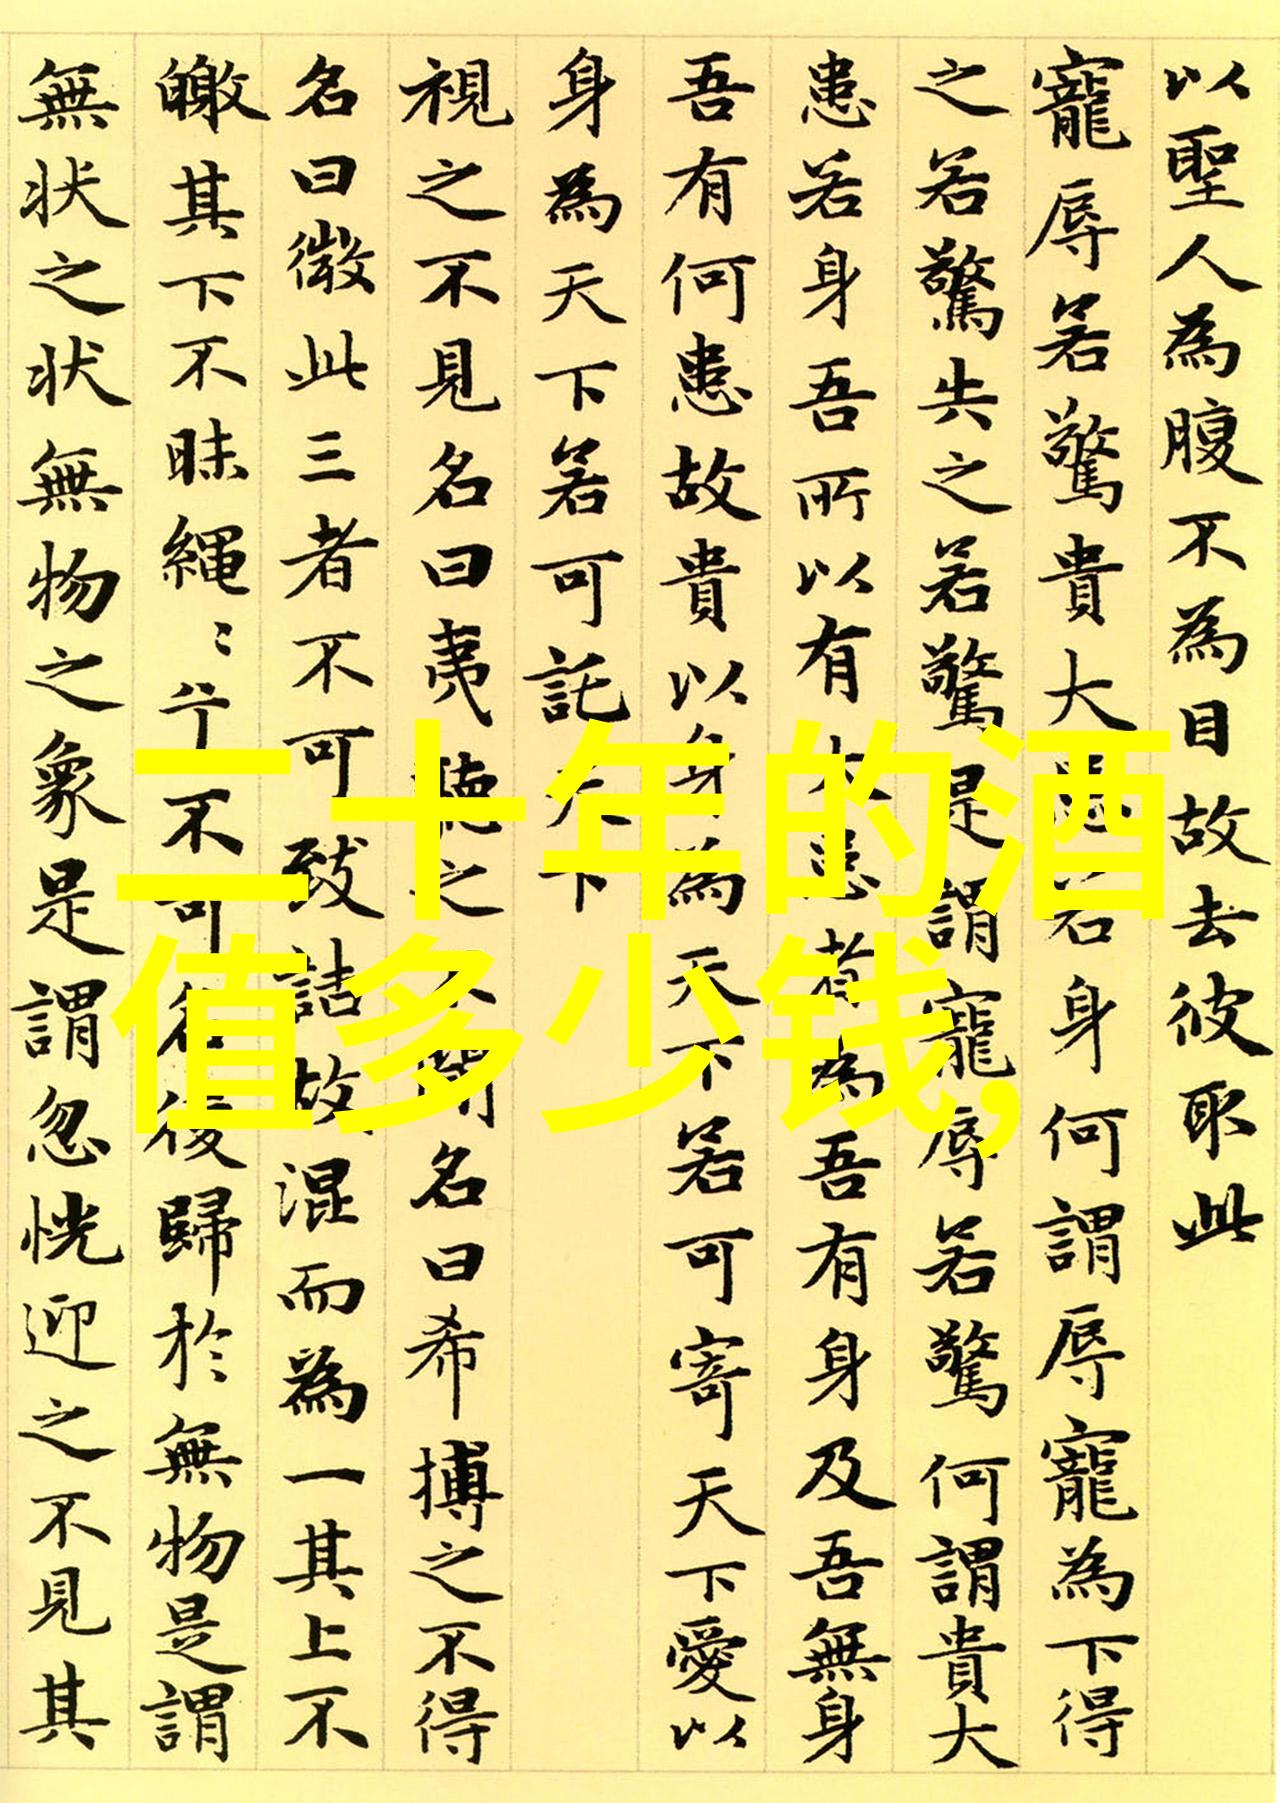 以聖人為腹不為目故去彼取此
寵辱若驚貴大患若身何謂辱寵為下得
之若驚失之若驚是謂寵辱若驚何謂貴大
患若身吾所以有大患者為吾有身及吾無身
吾有何患故貴以身為天下若可寄天下愛以
身為天下若可託天下
視之不見名曰夷聽之不聞名曰希搏之不得
名曰微此三者不可致詰故混而為一其上不
皦其下不昧縄〻兮不可名復歸於無物是謂
無状之状無物之象是謂忽恍迎之不見其
二十年的酒
值多少钱,